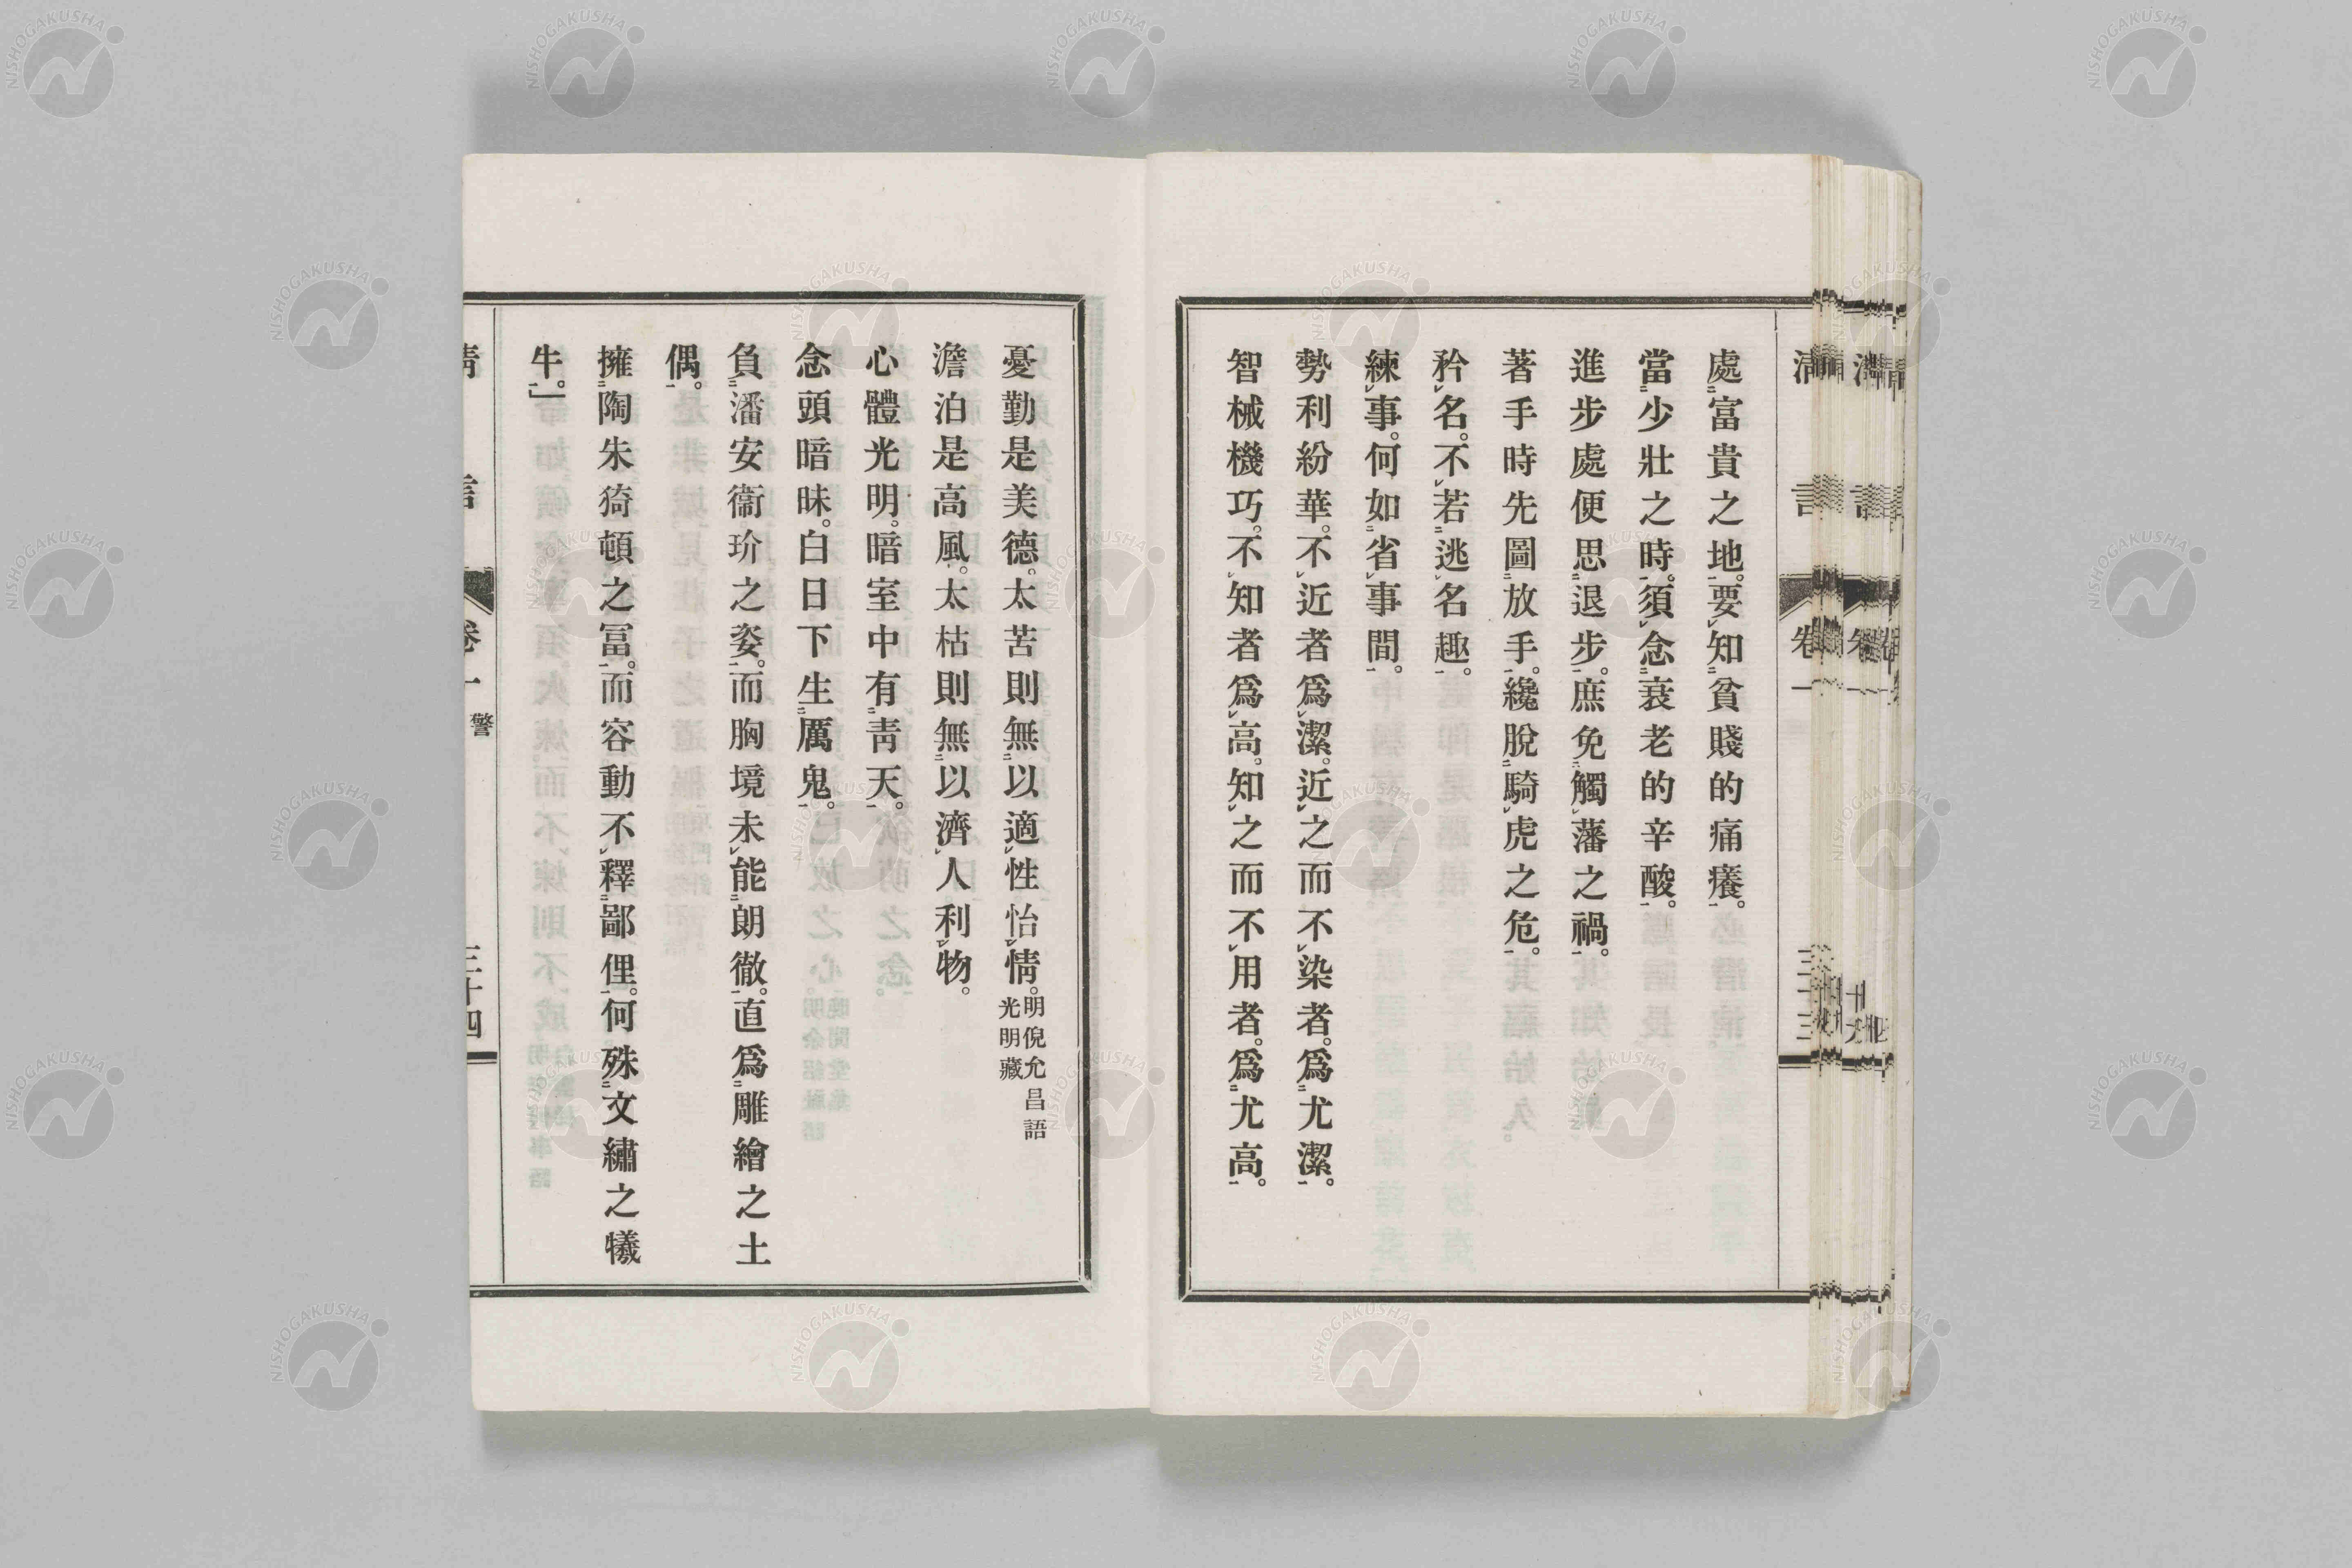 處富貴之地。要知貧賤的痛癢。
當少壯之時。須念衰老的辛酸。
進步處便思退步。庶免觸藩之禍。
著手時先圖放手。纔脫騎虎之危。
矜名。不若逃名趣。
練事。何如省事間。
勢利紛華。不近者爲潔。近之而不染者。爲尤潔。
智械機巧。不知者爲高。知之而不用者。爲尤高。
清言
卷一
三十三
憂勤是美德。太苦則無以適性怡情。明倪允昌語
光明藏
澹泊是高風。太枯則無以濟人利物。
心體光明。暗室中有靑天。
念頭暗昧。白日下生厲鬼。
負潘安衞玠之姿。而胸境未能朗徹。直爲雕繪之土
偶。
擁陶朱猗頓之冨。而容動不釋鄙俚。何殊文繡之犧
牛。」
清言
卷一
警
三十四
NISHOGAKUSHA